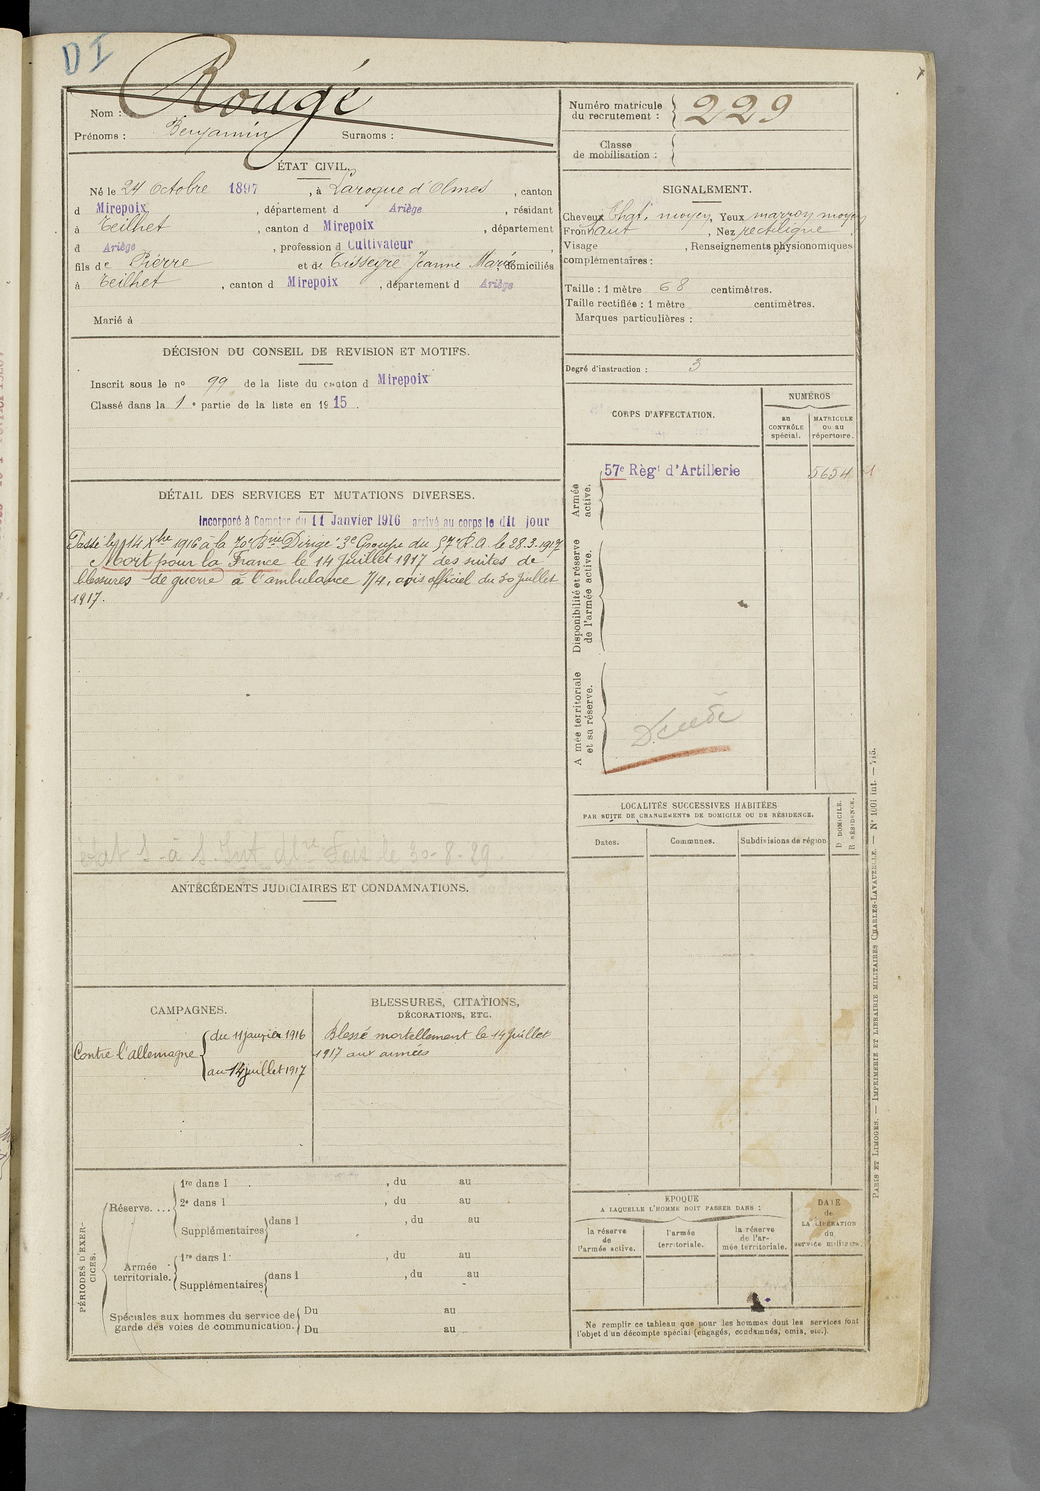 DI
Nom : Rougé
Prénoms : Benjamin Surnoms :
Numéro matricule du recrutement : 229
Classe de mobilisation :
ÉTAT CIVIL.
Né le 24 Octobre 1897, à Laroque d'Olmes, canton
d Mirepoix, département d Ariège, résidant
à Teilhet, canton d Mirepoix, département
d Ariège, profession d Cultivateur
fils de Pierre et de Tisseyre Jeanne Marie, domiciliés
à Teilhet, canton d Mirepoix, département d Ariège
Marié à
SIGNALEMENT.
Cheveux Chat. moyen, Yeux marron moyen
Front haut, Nez rectiligne,
Visage , Renseignements physionomiques
complémentaires :
Taille : 1 mètre 68 centimètres.
Taille rectifiée : 1 mètre centimètres.
Marques particulières :
Degré d'instruction : 3
DÉCISION DU CONSEIL DE REVISION ET MOTIFS.
Inscrit sous le nº 99 de la liste du canton d Mirepoix
Classé dans la 1e partie de la liste en 1915.
CORPS D'AFFECTATION.
NUMÉROS
au CONTRÔLE spécial.
MATRICULE ou au répertoire.
Armée active.
57e Régt d'Artillerie 5654
Disponibilité et réserve de l'armée active.
Armée territoriale et sa réserve.
Décédé
DÉTAIL DES SERVICES ET MUTATIONS DIVERSES.
Incorporé à Compter du 11 Janvier 1916 arrivé au corps le dit jour
Passé le 14 Xbre 1916 à la 70e Bie Dirigé 3e Groupe du 57e R.A. le 28.3.1917
Mort pour la France le 14 juillet 1917 des suites de
blessures de guerre à l'ambulance 1/4, avis officiel du 30 juillet
1917.
le 30-8-29.
ANTÉCÉDENTS JUDICIAIRES ET CONDAMNATIONS.
LOCALITÉS SUCCESSIVES HABITÉES
PAR SUITE DE CHANGEMENTS DE DOMICILE OU DE RÉSIDENCE.
Dates. Communes. Subdivisions de région
D DOMICILE.
R RÉSIDENCE.
CAMPAGNES.
Contre l'allemagne
du 11 janvier 1916
au 14 juillet 1917
BLESSURES, CITATIONS,
DÉCORATIONS, ETC.
Blessé mortellement le 14 Juillet
1917 aux armées
PÉRIODES D'EXERCICES.
Réserve....
1re dans l , du au
2e dans l , du au
Supplémentaires dans l , du au
Armée territoriale.
1re dans l , du au
Supplémentaires dans l , du au
Spéciales aux hommes du service de
garde des voies de communication.
Du au
Du au
EPOQUE
A LAQUELLE L'HOMME DOIT PASSER DANS :
la réserve de l'armée active.
l'armée territoriale.
la réserve de l'armée territoriale.
DATE de LA LIBÉRATION du service militaire.
Ne remplir ce tableau que pour les hommes dont les services font
l'objet d'un décompte spécial (engagés, condamnés, omis, etc.).
PARIS ET LIMOGES. — IMPRIMERIE ET LIBRAIRIE MILITAIRES CHARLES-LAVAUZELLE. — Nº 1001 int. — 715.